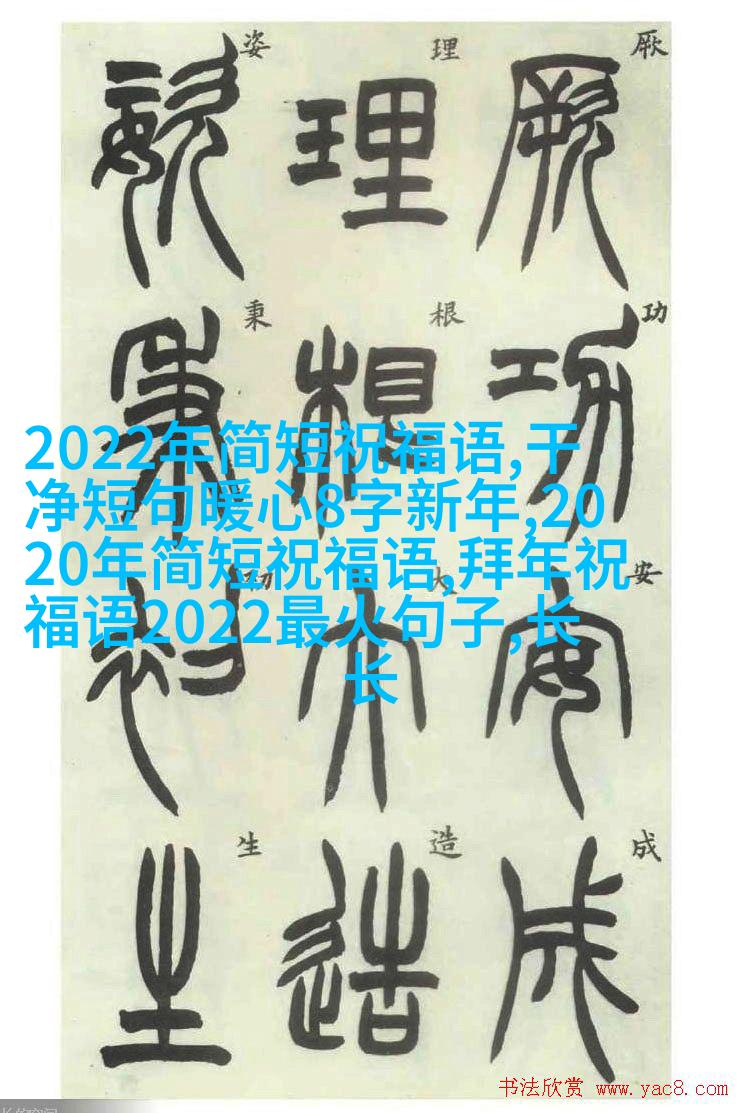 厥功安成
厥功安成
理根大造
理根大造
姿秉初生
姿秉初生
2022年简短祝福语,干
净短句暖心8字新年,20
20年简短祝福语,拜年祝
福语2022最火句子,长
长
书法欣赏 www.yac8.com